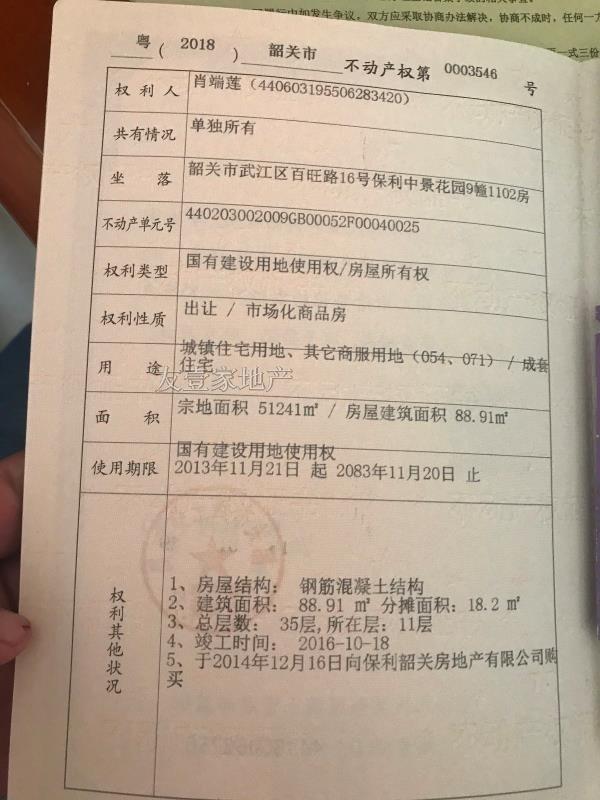 中如发生争议，双方应采取协商办法解决，协商不成时，任何一方
一式三份
粤 ( 2018 ) 韶关市 不动产权第 0003546 号
权利人 肖端莲（440603195506283420）
共有情况 单独所有
坐落 韶关市武江区百旺路16号保利中景花园9幢1102房
不动产单元号 440203002009GB00052F00040025
权利类型 国有建设用地使用权/房屋所有权
权利性质 出让 / 市场化商品房
用途 城镇住宅用地、其它商服用地（054、071）/ 成套
住宅
友壹家地产
面积 宗地面积 51241㎡ / 房屋建筑面积 88.91㎡
使用期限 国有建设用地使用权
2013年11月21日 起 2083年11月20日 止
权利其他状况
1、房屋结构： 钢筋混凝土结构
2、建筑面积： 88.91 ㎡ 分摊面积：18.2 ㎡
3、总层数： 35层,所在层：11层
4、竣工时间： 2016-10-18
5、于2014年12月16日向保利韶关房地产有限公司购
买